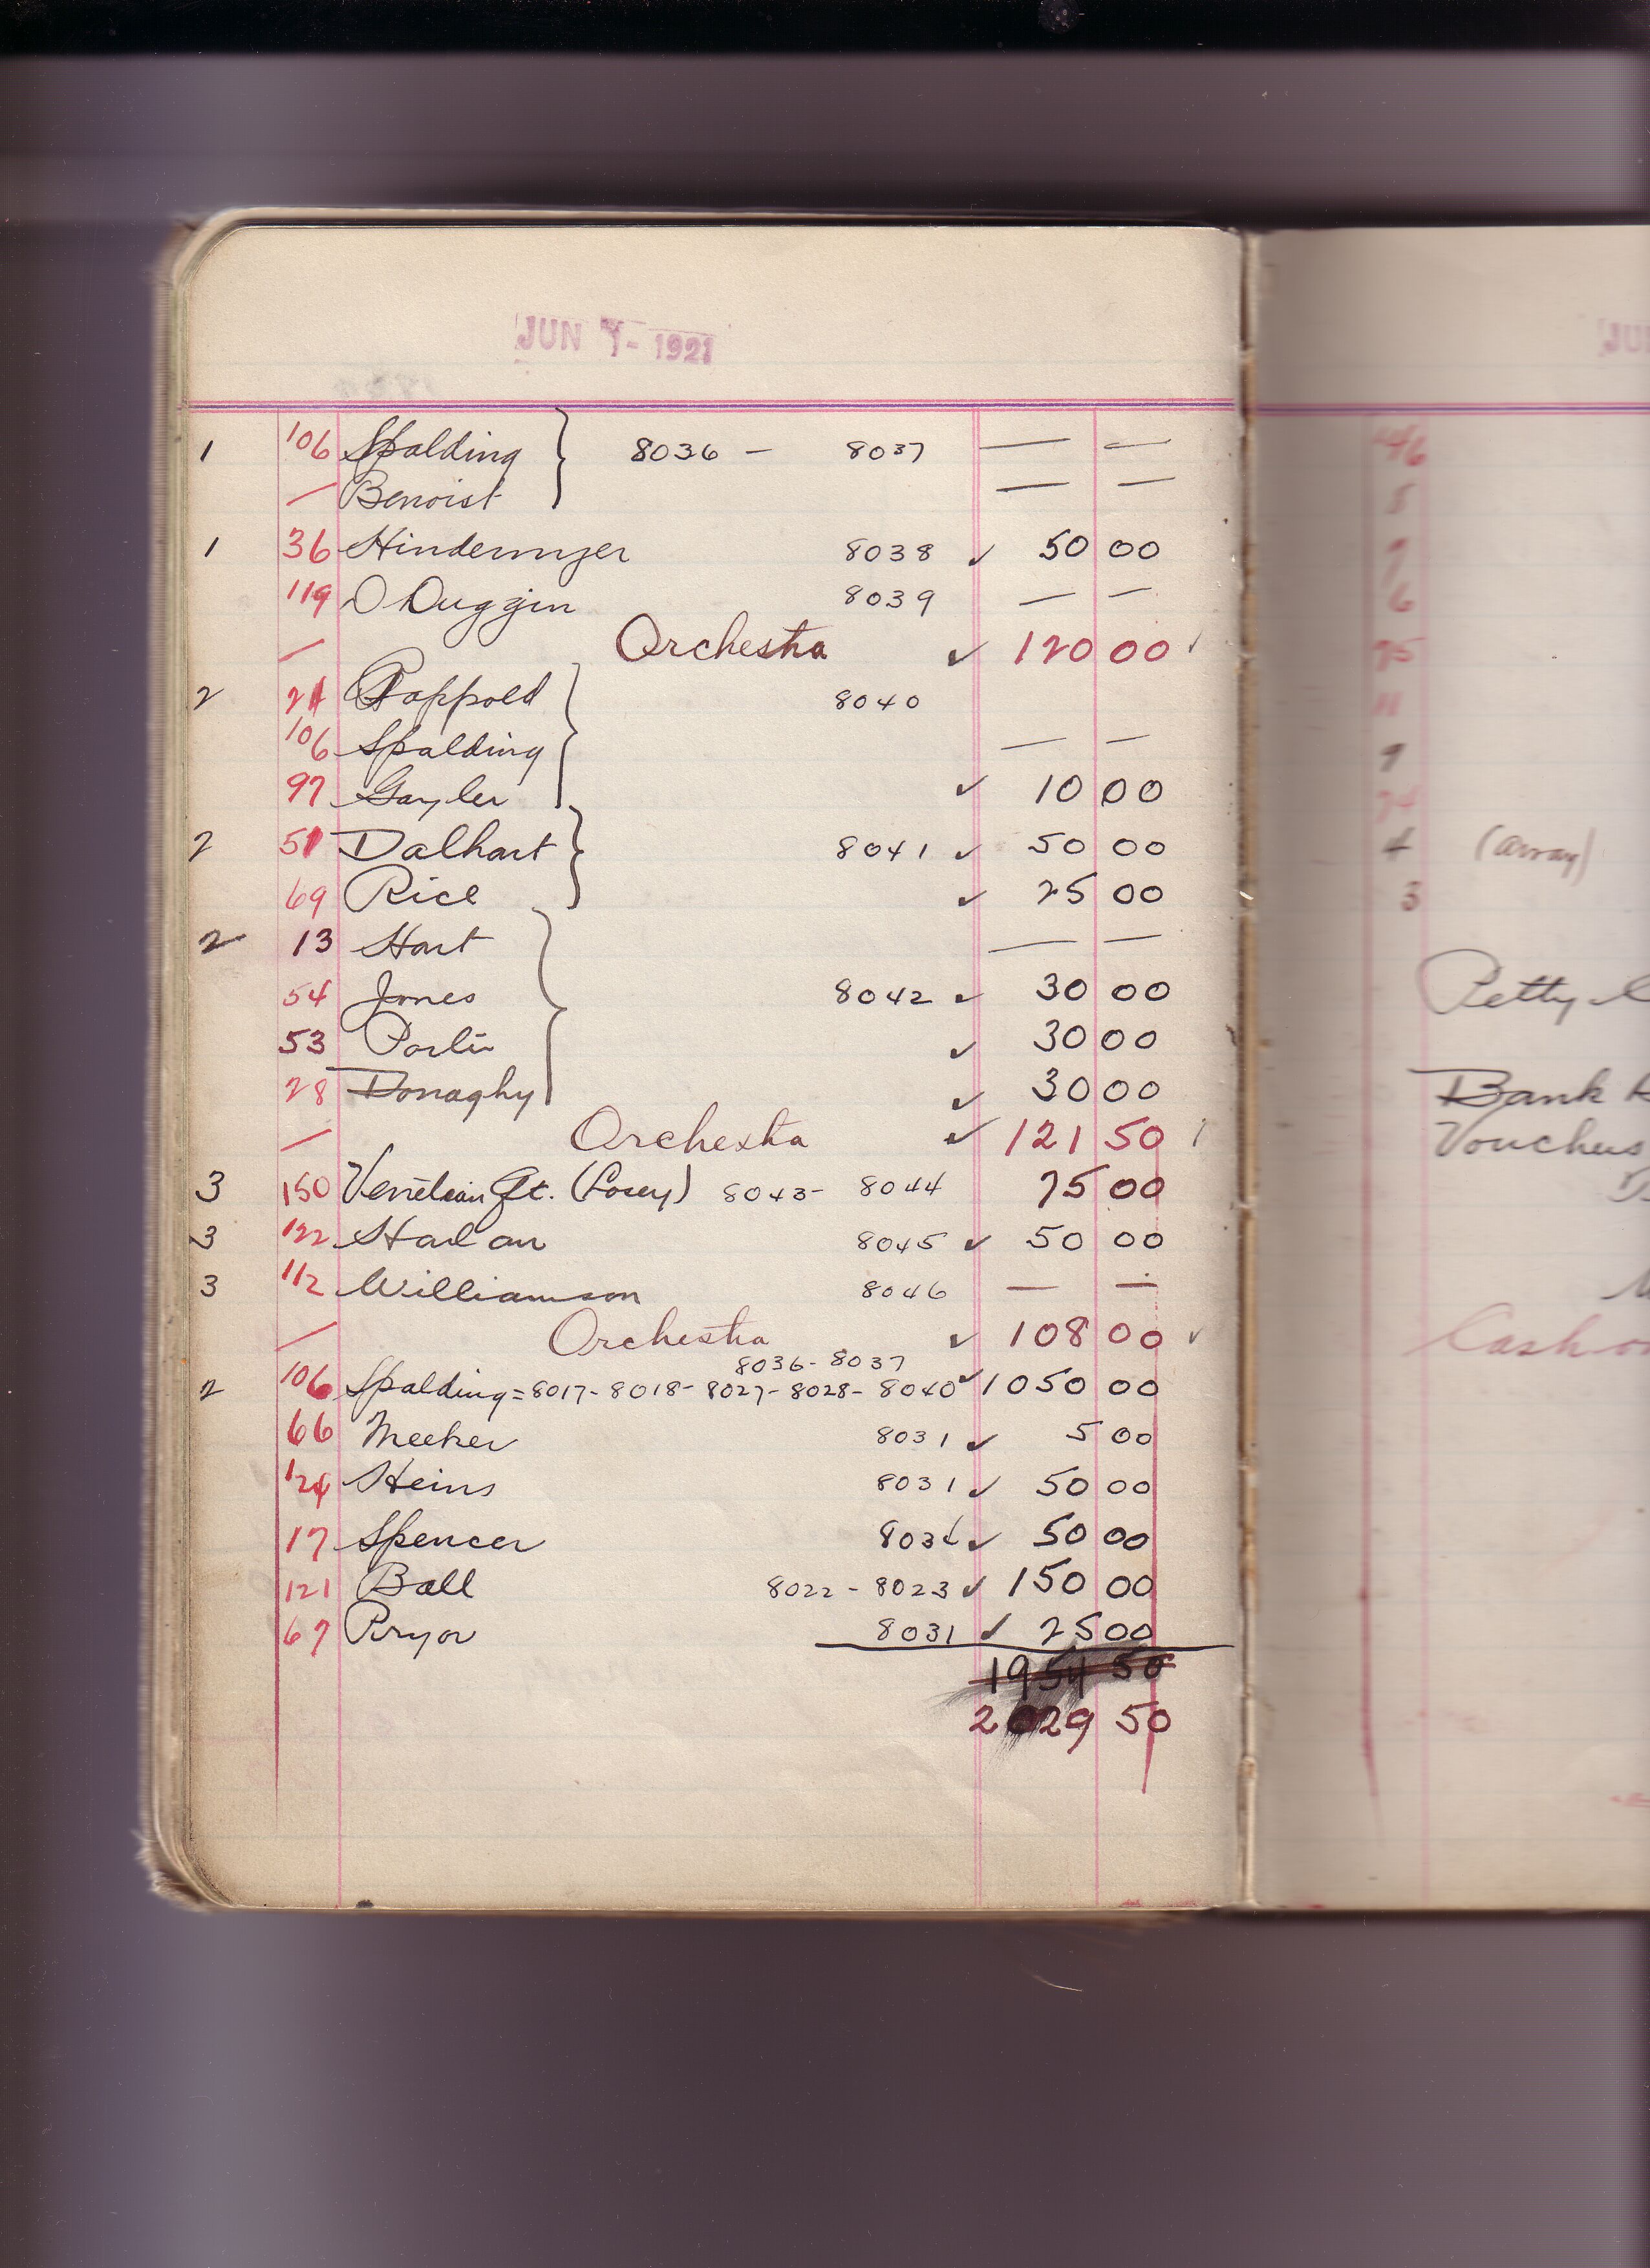 JUN 7- 1921
1 106 Spalding } 8036 - 8037 — —
— Benoist — —
1 36 Hindermyer 8038 ✓ 50 00
119 O Duggin 8039 — —
— Orchestra ✓ 120 00 ✓
2 21 Rappold } 8040
106 Spalding — —
97 Gayler ✓ 10 00
2 51 Dalhart } 8041 ✓ 50 00
69 Rice ✓ 25 00
2 13 Hart } — —
54 Jones 8042 ✓ 30 00
53 Parlin ✓ 30 00
28 Donaghy ✓ 30 00
— Orchestra ✓ 121 50 ✓
3 150 Venetian Qt. (Posey) 8043- 8044 75 00
3 122 Harlan 8045 ✓ 50 00
3 112 Williamson 8046 — —
— Orchestra ✓ 108 00 ✓
8036- 8037
2 106 Spalding = 8017- 8018- 8027- 8028- 8040 ✓ 1050 00
66 Meeker 8031 ✓ 5 00
124 Heins 8031 ✓ 50 00
17 Spencer ✓ 50 00
121 Ball 8022 - 8023 ✓ 150 00
67 Pryor 8031 ✓ 25 00
1954 50
2029 50
(array)
3
Petty
Bank
Vouchers
Cash on